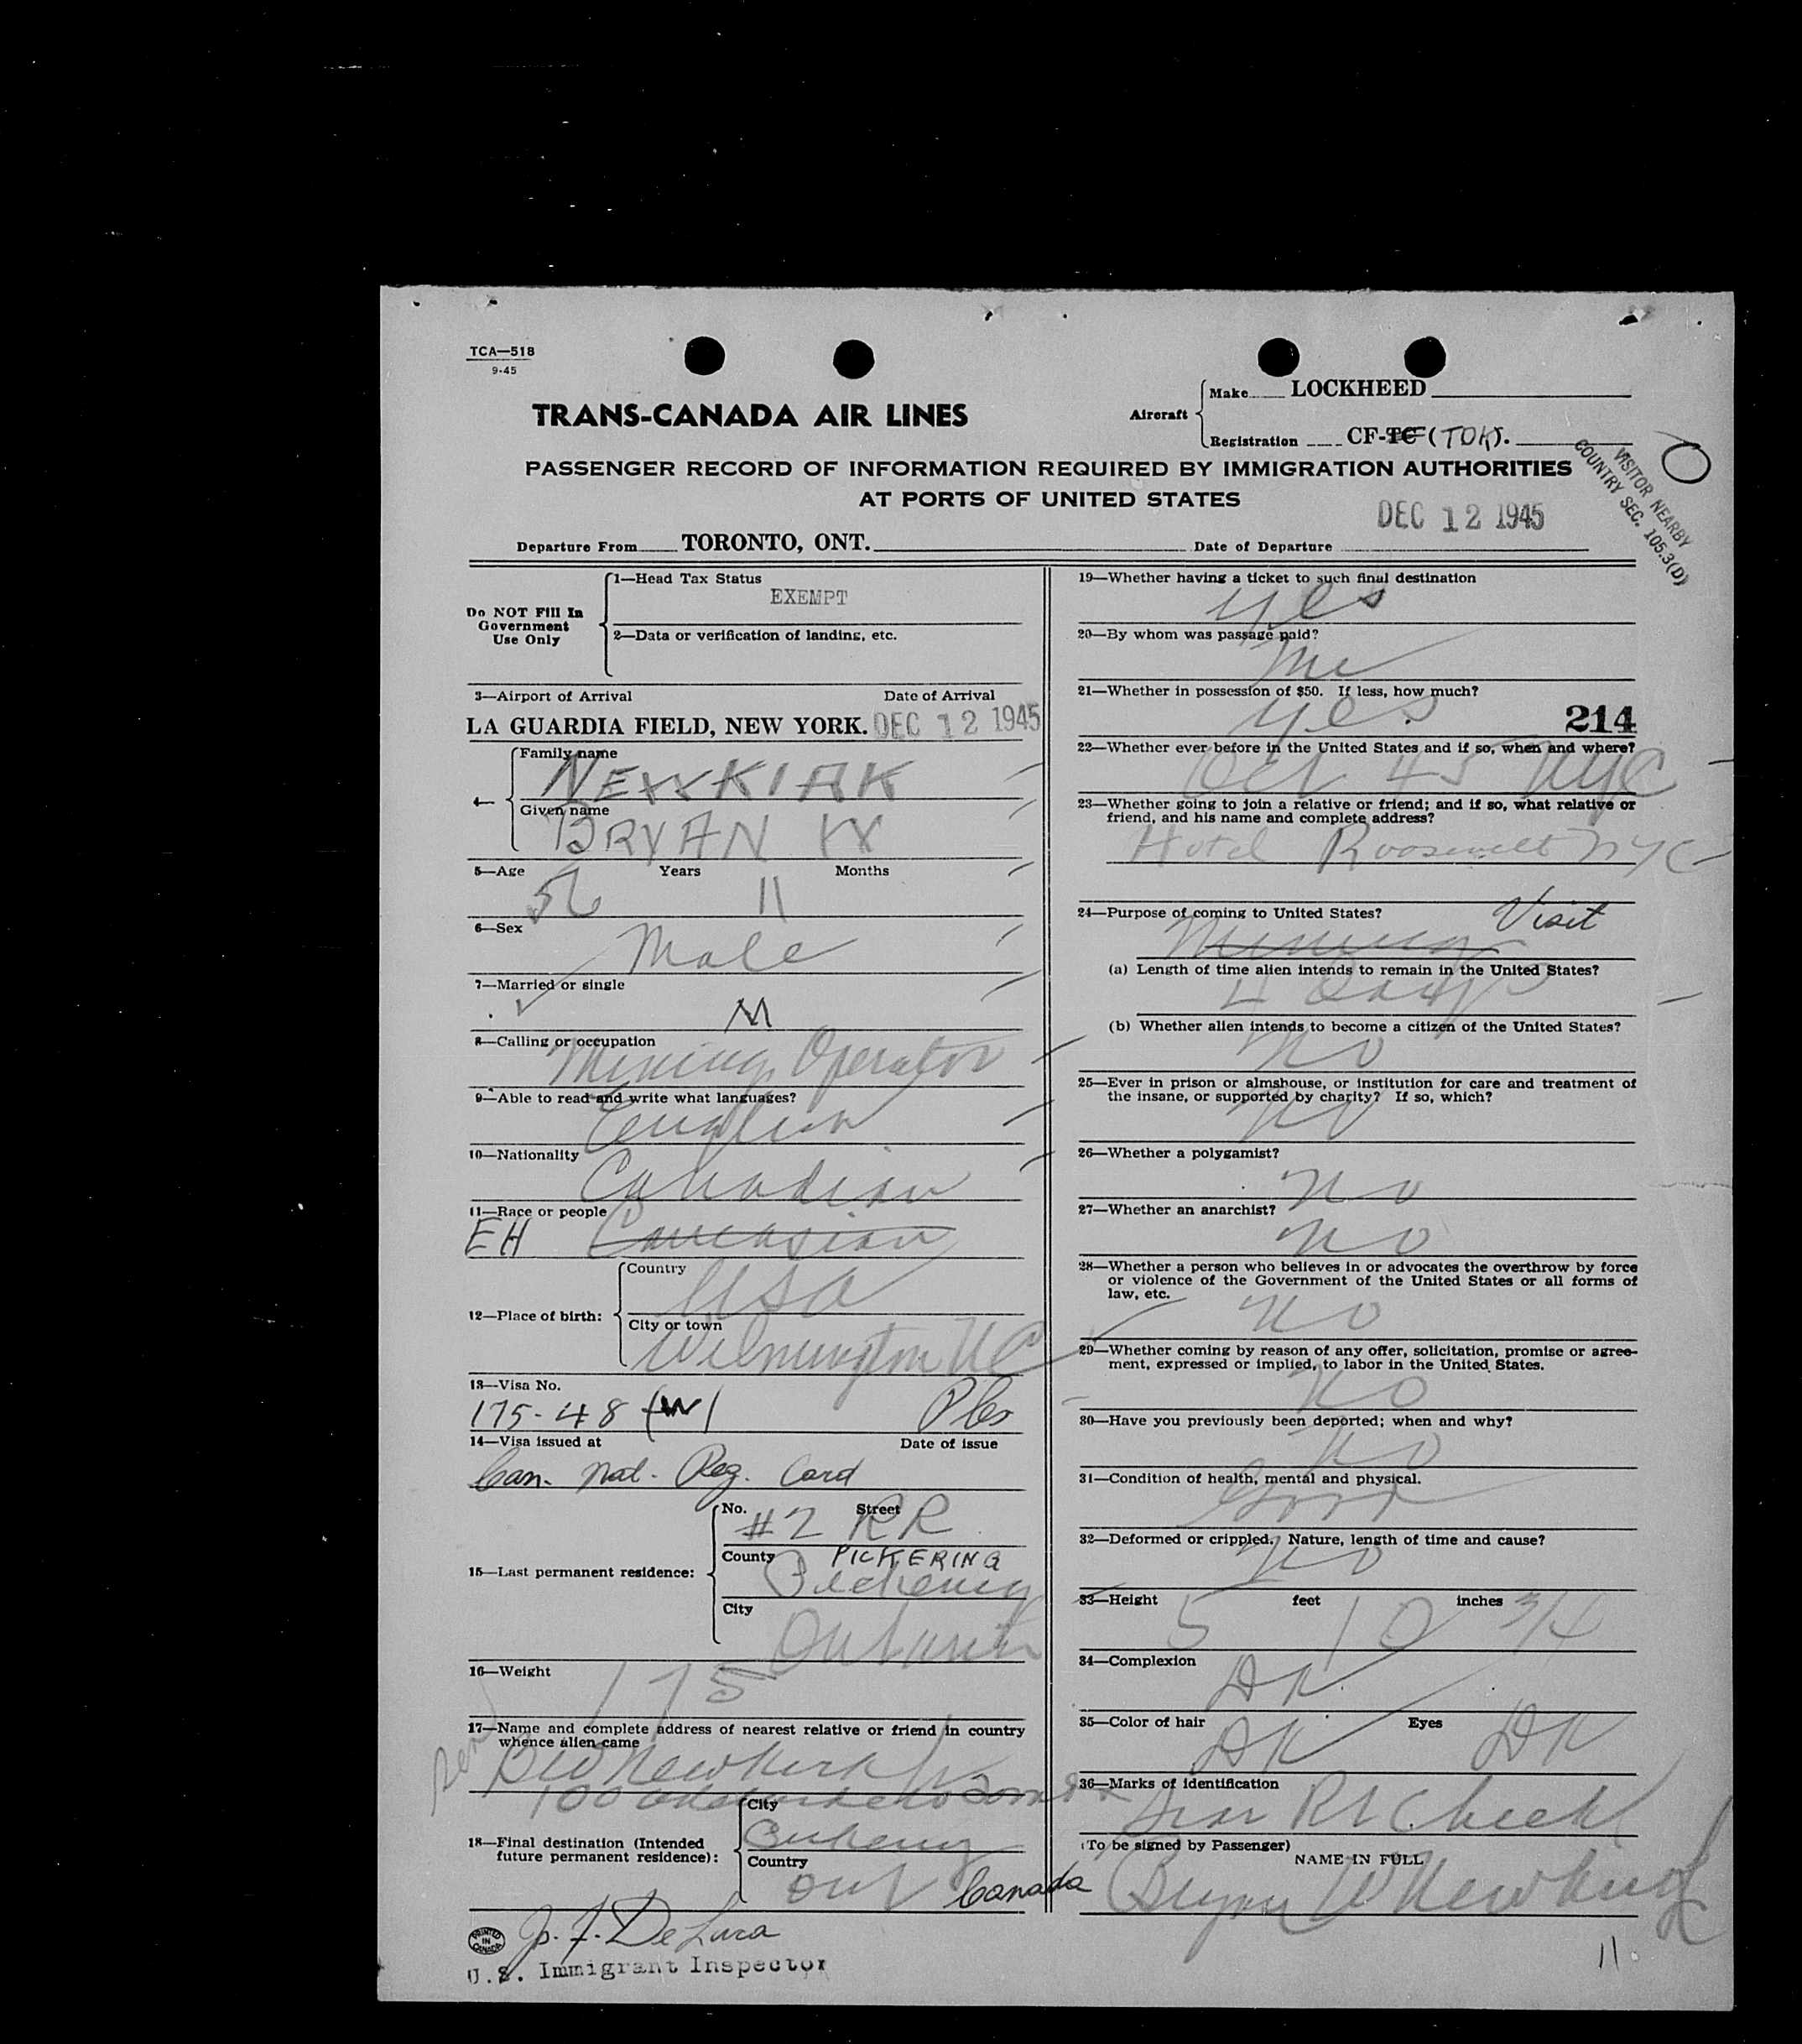 TCA—518
9-45
TRANS-CANADA AIR LINES
Aircraft
Make LOCKHEED
Registration CF-TC (TOK).
PASSENGER RECORD OF INFORMATION REQUIRED BY IMMIGRATION AUTHORITIES
AT PORTS OF UNITED STATES
VISITOR NEARBY
COUNTRY SEC. 105.3(D)
DEC 12 1945
Departure From TORONTO, ONT. Date of Departure
Do NOT Fill In
Government
Use Only
1—Head Tax Status
EXEMPT
2—Data or verification of landing, etc.
3—Airport of Arrival Date of Arrival
LA GUARDIA FIELD, NEW YORK. DEC 12 1945
4—
Family name
NEWKIRK
Given name
BRYAN W
5—Age Years Months
56 11
6—Sex
Male
7—Married or single
M
8—Calling or occupation
Mining Operator
9—Able to read and write what languages?
English
10—Nationality
Canadian
11—Race or people
EH Caucasian
12—Place of birth:
Country
USA
City or town
Wilmington NC
13—Visa No.
175-48 (W)
14—Visa issued at Date of issue
Can. Nat. Reg. Card
15—Last permanent residence:
No. Street
#2 RR
County PICKERING
Pickering
City
Ontario
16—Weight
175
17—Name and complete address of nearest relative or friend in country
whence alien came
BW Newkirk Jr
100 Adelaide
18—Final destination (Intended
future permanent residence):
City
Pickering
Country
Ont Canada
PRINTED
IN
CANADA
J. F. DeLuca
U.S. Immigrant Inspector
19—Whether having a ticket to such final destination
yes
20—By whom was passage paid?
Me
21—Whether in possession of $50. If less, how much?
yes
214
22—Whether ever before in the United States and if so, when and where?
Oct 45 NYC
23—Whether going to join a relative or friend; and if so, what relative or
friend, and his name and complete address?
Hotel Roosevelt NYC
24—Purpose of coming to United States? Visit
Mining
(a) Length of time alien intends to remain in the United States?
4 Days
(b) Whether alien intends to become a citizen of the United States?
No
25—Ever in prison or almshouse, or institution for care and treatment of
the insane, or supported by charity? If so, which?
No
26—Whether a polygamist?
No
27—Whether an anarchist?
No
28—Whether a person who believes in or advocates the overthrow by force
or violence of the Government of the United States or all forms of
law, etc.
No
29—Whether coming by reason of any offer, solicitation, promise or agree-
ment, expressed or implied, to labor in the United States.
No
30—Have you previously been deported; when and why?
No
31—Condition of health, mental and physical.
Good
32—Deformed or crippled. Nature, length of time and cause?
No
33—Height feet inches
5 10 3/4
34—Complexion
DK
35—Color of hair Eyes
DK DK
36—Marks of identification
Scar Rt Cheek
(To be signed by Passenger)
NAME IN FULL
Bryan W Newkirk
11